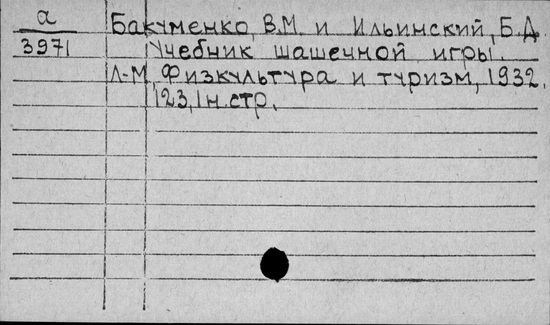 а Бакуменко, В.М. и Ильинский, Б.Д.
3971 Учебник шашечной игры.
Л-М, Физкультура и туризм, 1932.
123, 1 н.стр.